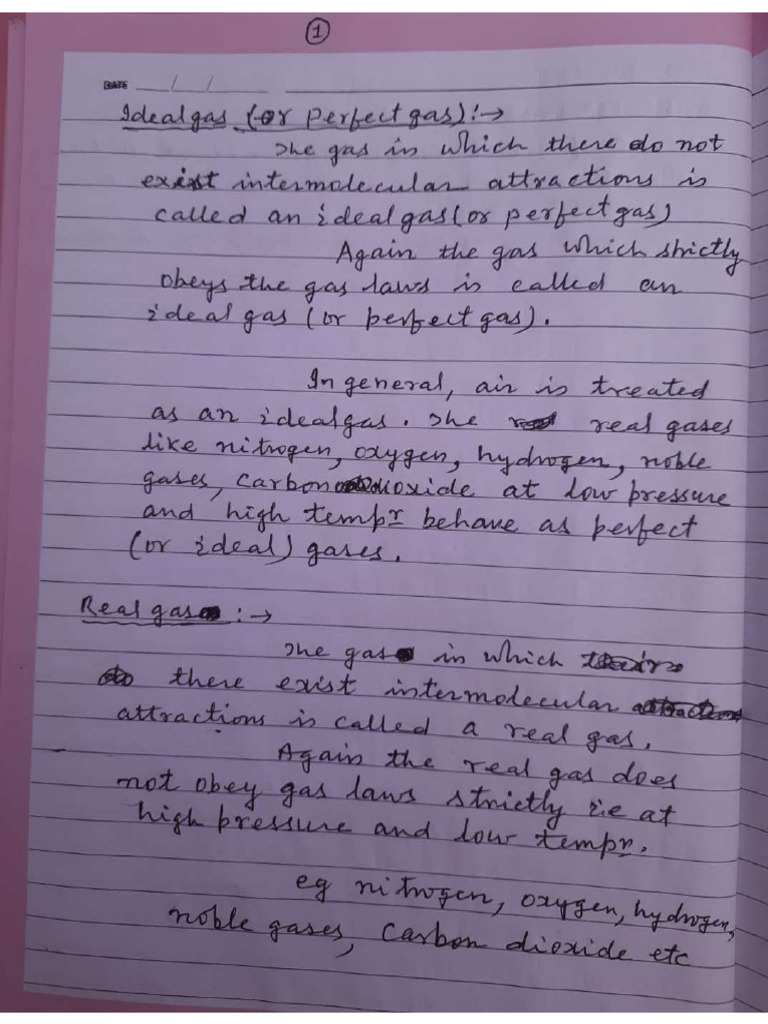 1
DATE / /
Ideal gas (or perfect gas) :→
The gas in which there do not
exist intermolecular attractions is
called an ideal gas (or perfect gas)
Again the gas which strictly
obeys the gas laws is called an
ideal gas (or perfect gas).
In general, air is treated
as an ideal gas. The real gases
like nitrogen, oxygen, hydrogen, noble
gases, carbon dioxide at low pressure
and high tempr behave as perfect
(or ideal) gases.
Real gas :→
The gas in which
there exist intermolecular
attractions is called a real gas.
Again the real gas does
not obey gas laws strictly ie at
high pressure and low tempr.
eg nitrogen, oxygen, hydrogen,
noble gases, carbon dioxide etc